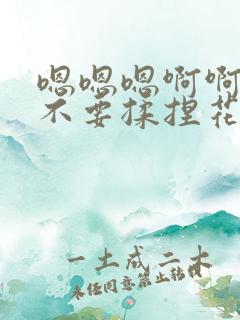 嗯嗯嗯啊啊
不要揉捏花
一土成二木
未经同意禁止转载